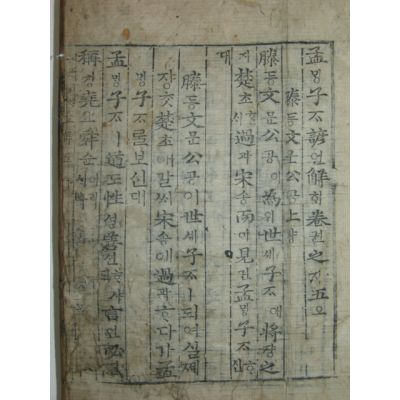 孟ᄆᆡᆼ子ᄌᆞ諺언解ᄒᆡ卷권之지五오
滕등文문公공上샹
滕등文문公공이爲위世셰子ᄌᆞ에將쟝之
지楚초ᄒᆞᆯᄉᆡ過과宋송而이見견孟ᄆᆡᆼ子ᄌᆞᄒᆞ신
대
滕등文문公공이世셰子ᄌᆞㅣ되여실제
쟝ᄎᆞᆺ楚초애갈ᄉᆡ宋송애過과ᄒᆞ다가孟
ᄆᆡᆼ子ᄌᆞᄅᆞᆯ보신대
孟ᄆᆡᆼ子ᄌᆞㅣ道도性셩善션ᄒᆞ샤ᄃᆡ言언必필
稱칭堯요舜슌